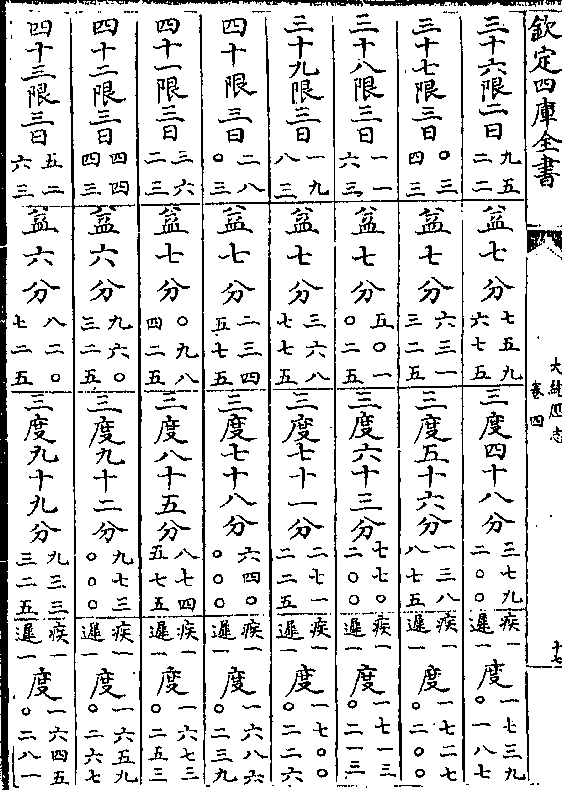 欽定四庫全書
大統厯志
卷四
十七
三十六限二日九五二二益七分七五九六七五三度四十八分三七九二〇〇疾一遲一度一七三九〇一八七
三十七限三日〇三四三益七分六三一三二五三度五十六分一三八八七五疾一遲一度一七二七〇二〇〇
三十八限三日一一六三益七分五〇一〇二五三度六十三分七七〇二〇〇疾一遲一度一七一三〇二一三
三十九限三日一九八三益七分三六八七七五三度七十一分二七一二二五疾一遲一度一七〇〇〇二二六
四十限三日二八〇三益七分二三四五七五三度七十八分六四〇〇〇〇疾一遲一度一六八六〇二三九
四十一限三日三六二三益七分〇九八四二五三度八十五分八七四五七五疾一遲一度一六七三〇二五三
四十二限三日四四四三益六分九六〇三二五三度九十二分九七三〇〇〇疾一遲一度一六五九〇二六七
四十三限三日五二六三益六分八二〇七二五三度九十九分九三三三二五疾一遲一度一六四五〇二八一